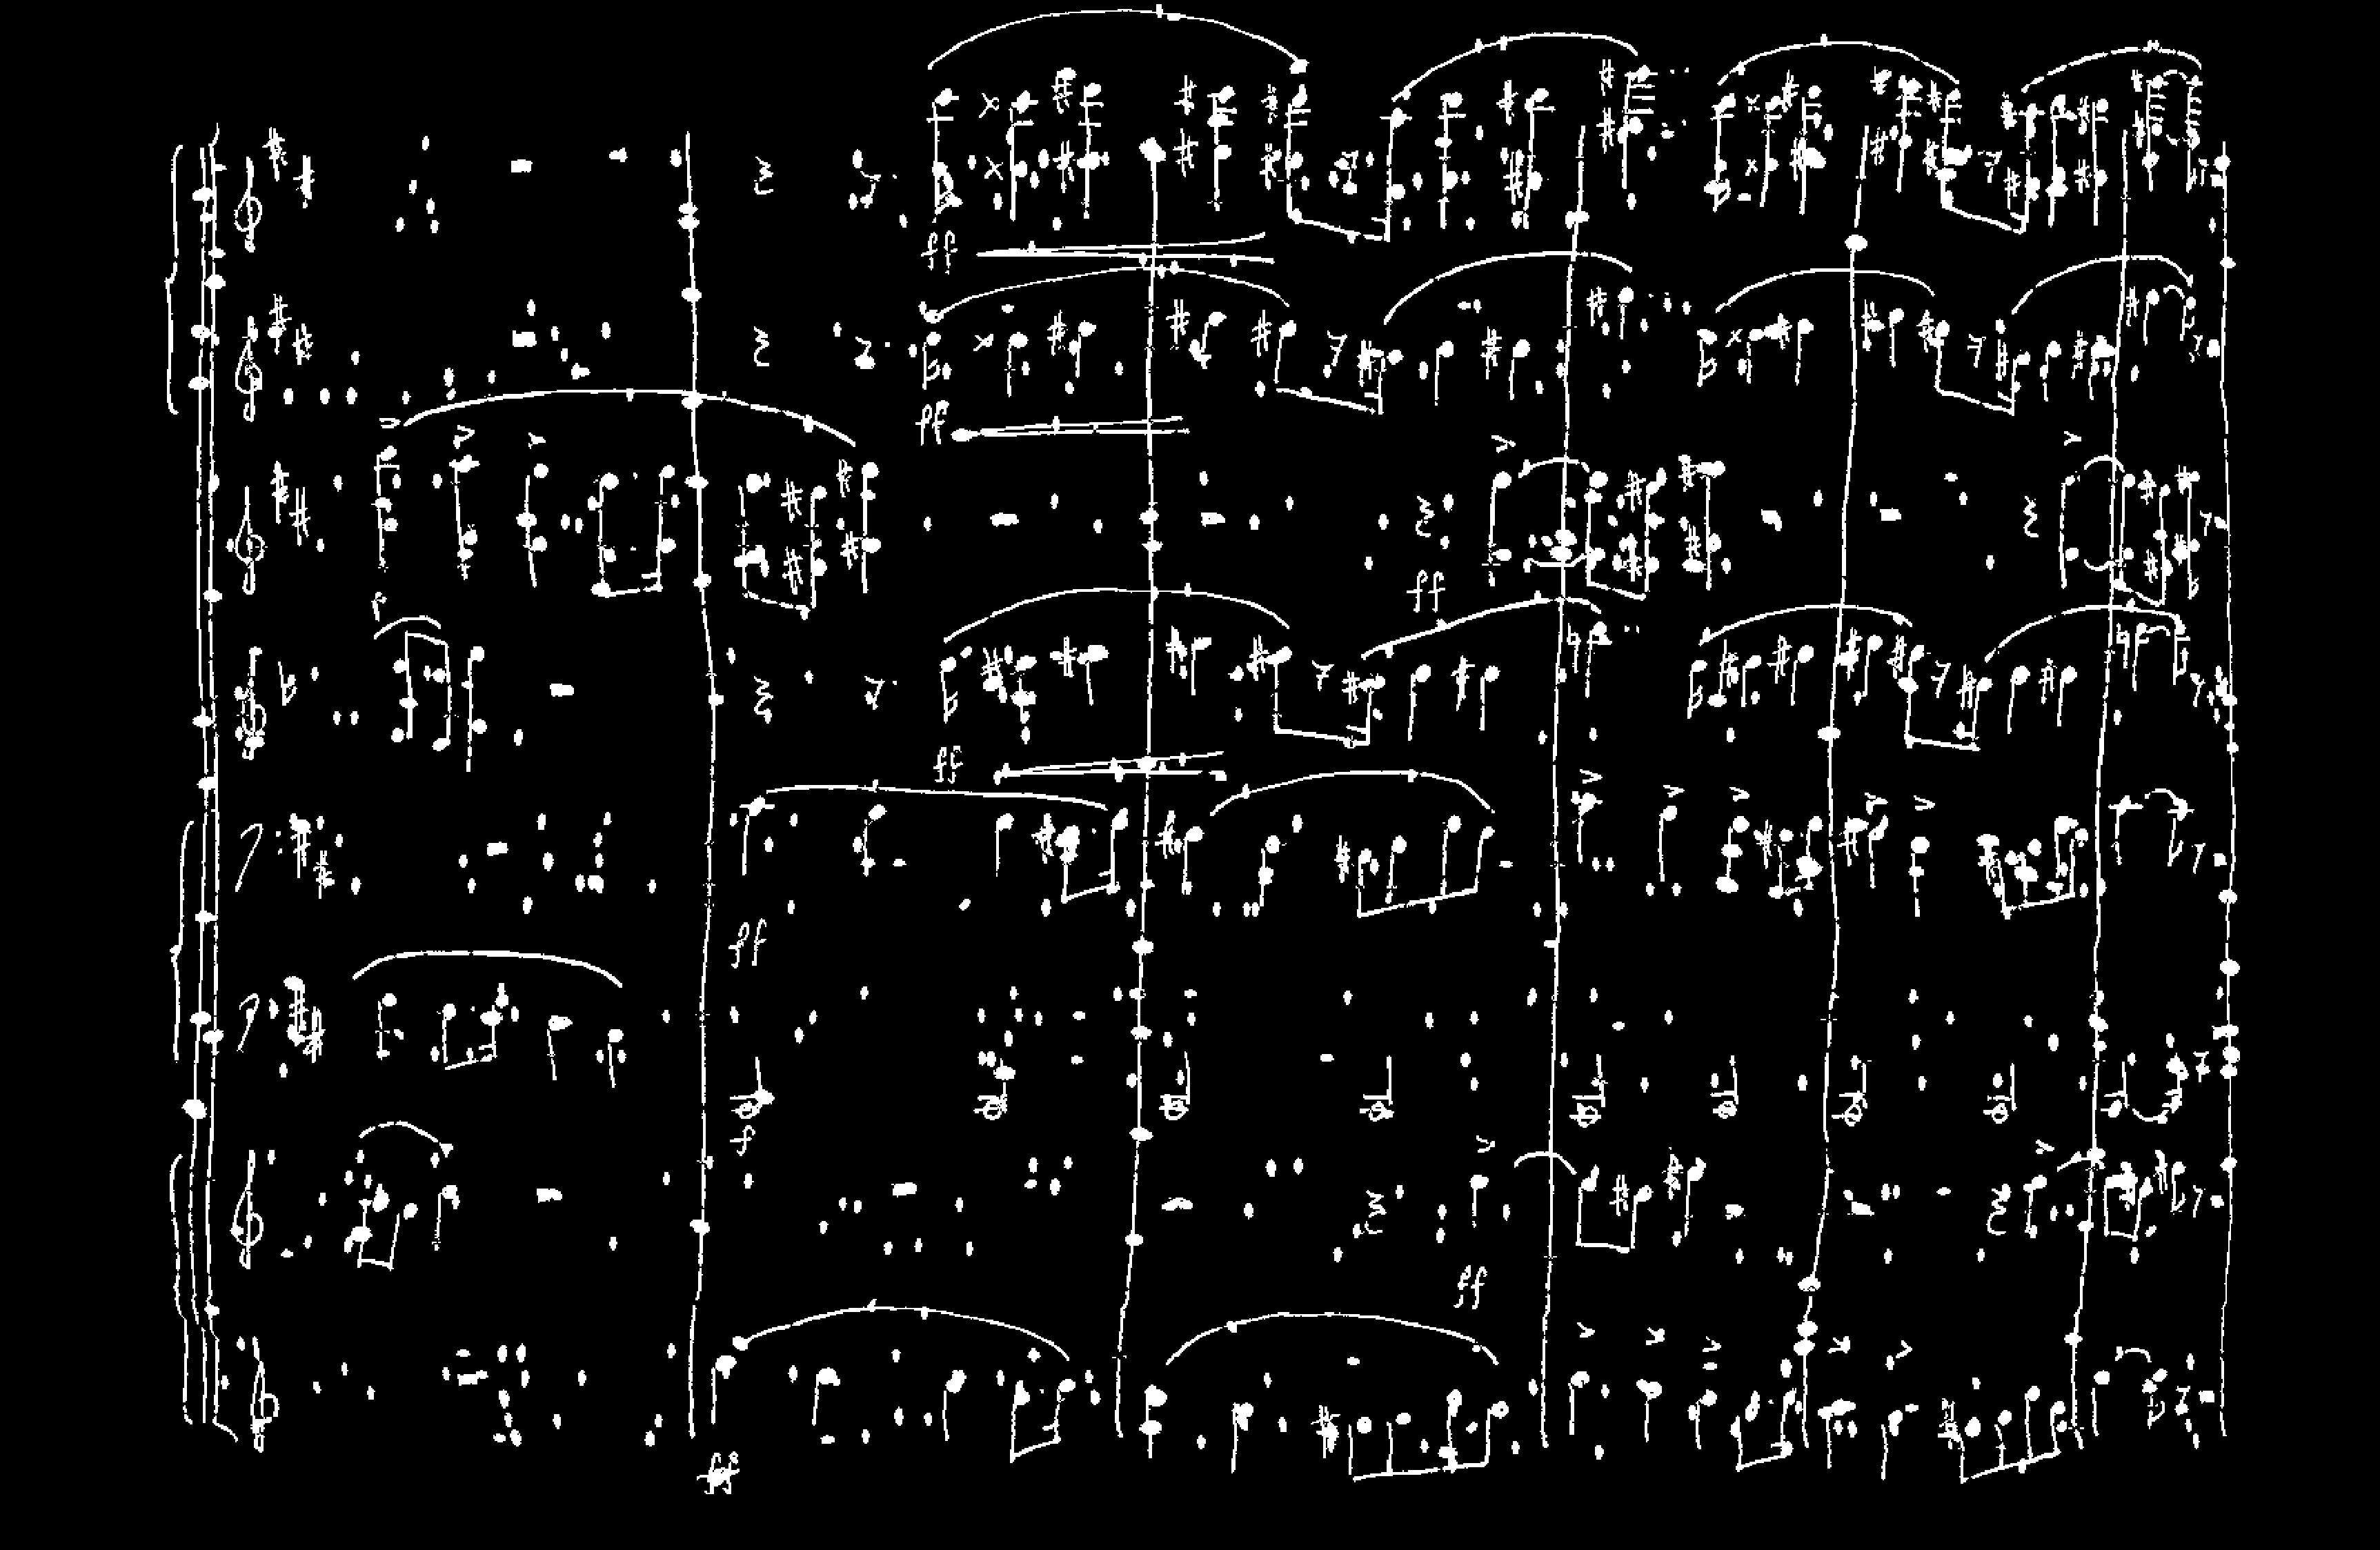 ff
ff
f
ff
ff
ff
f
ff
ff